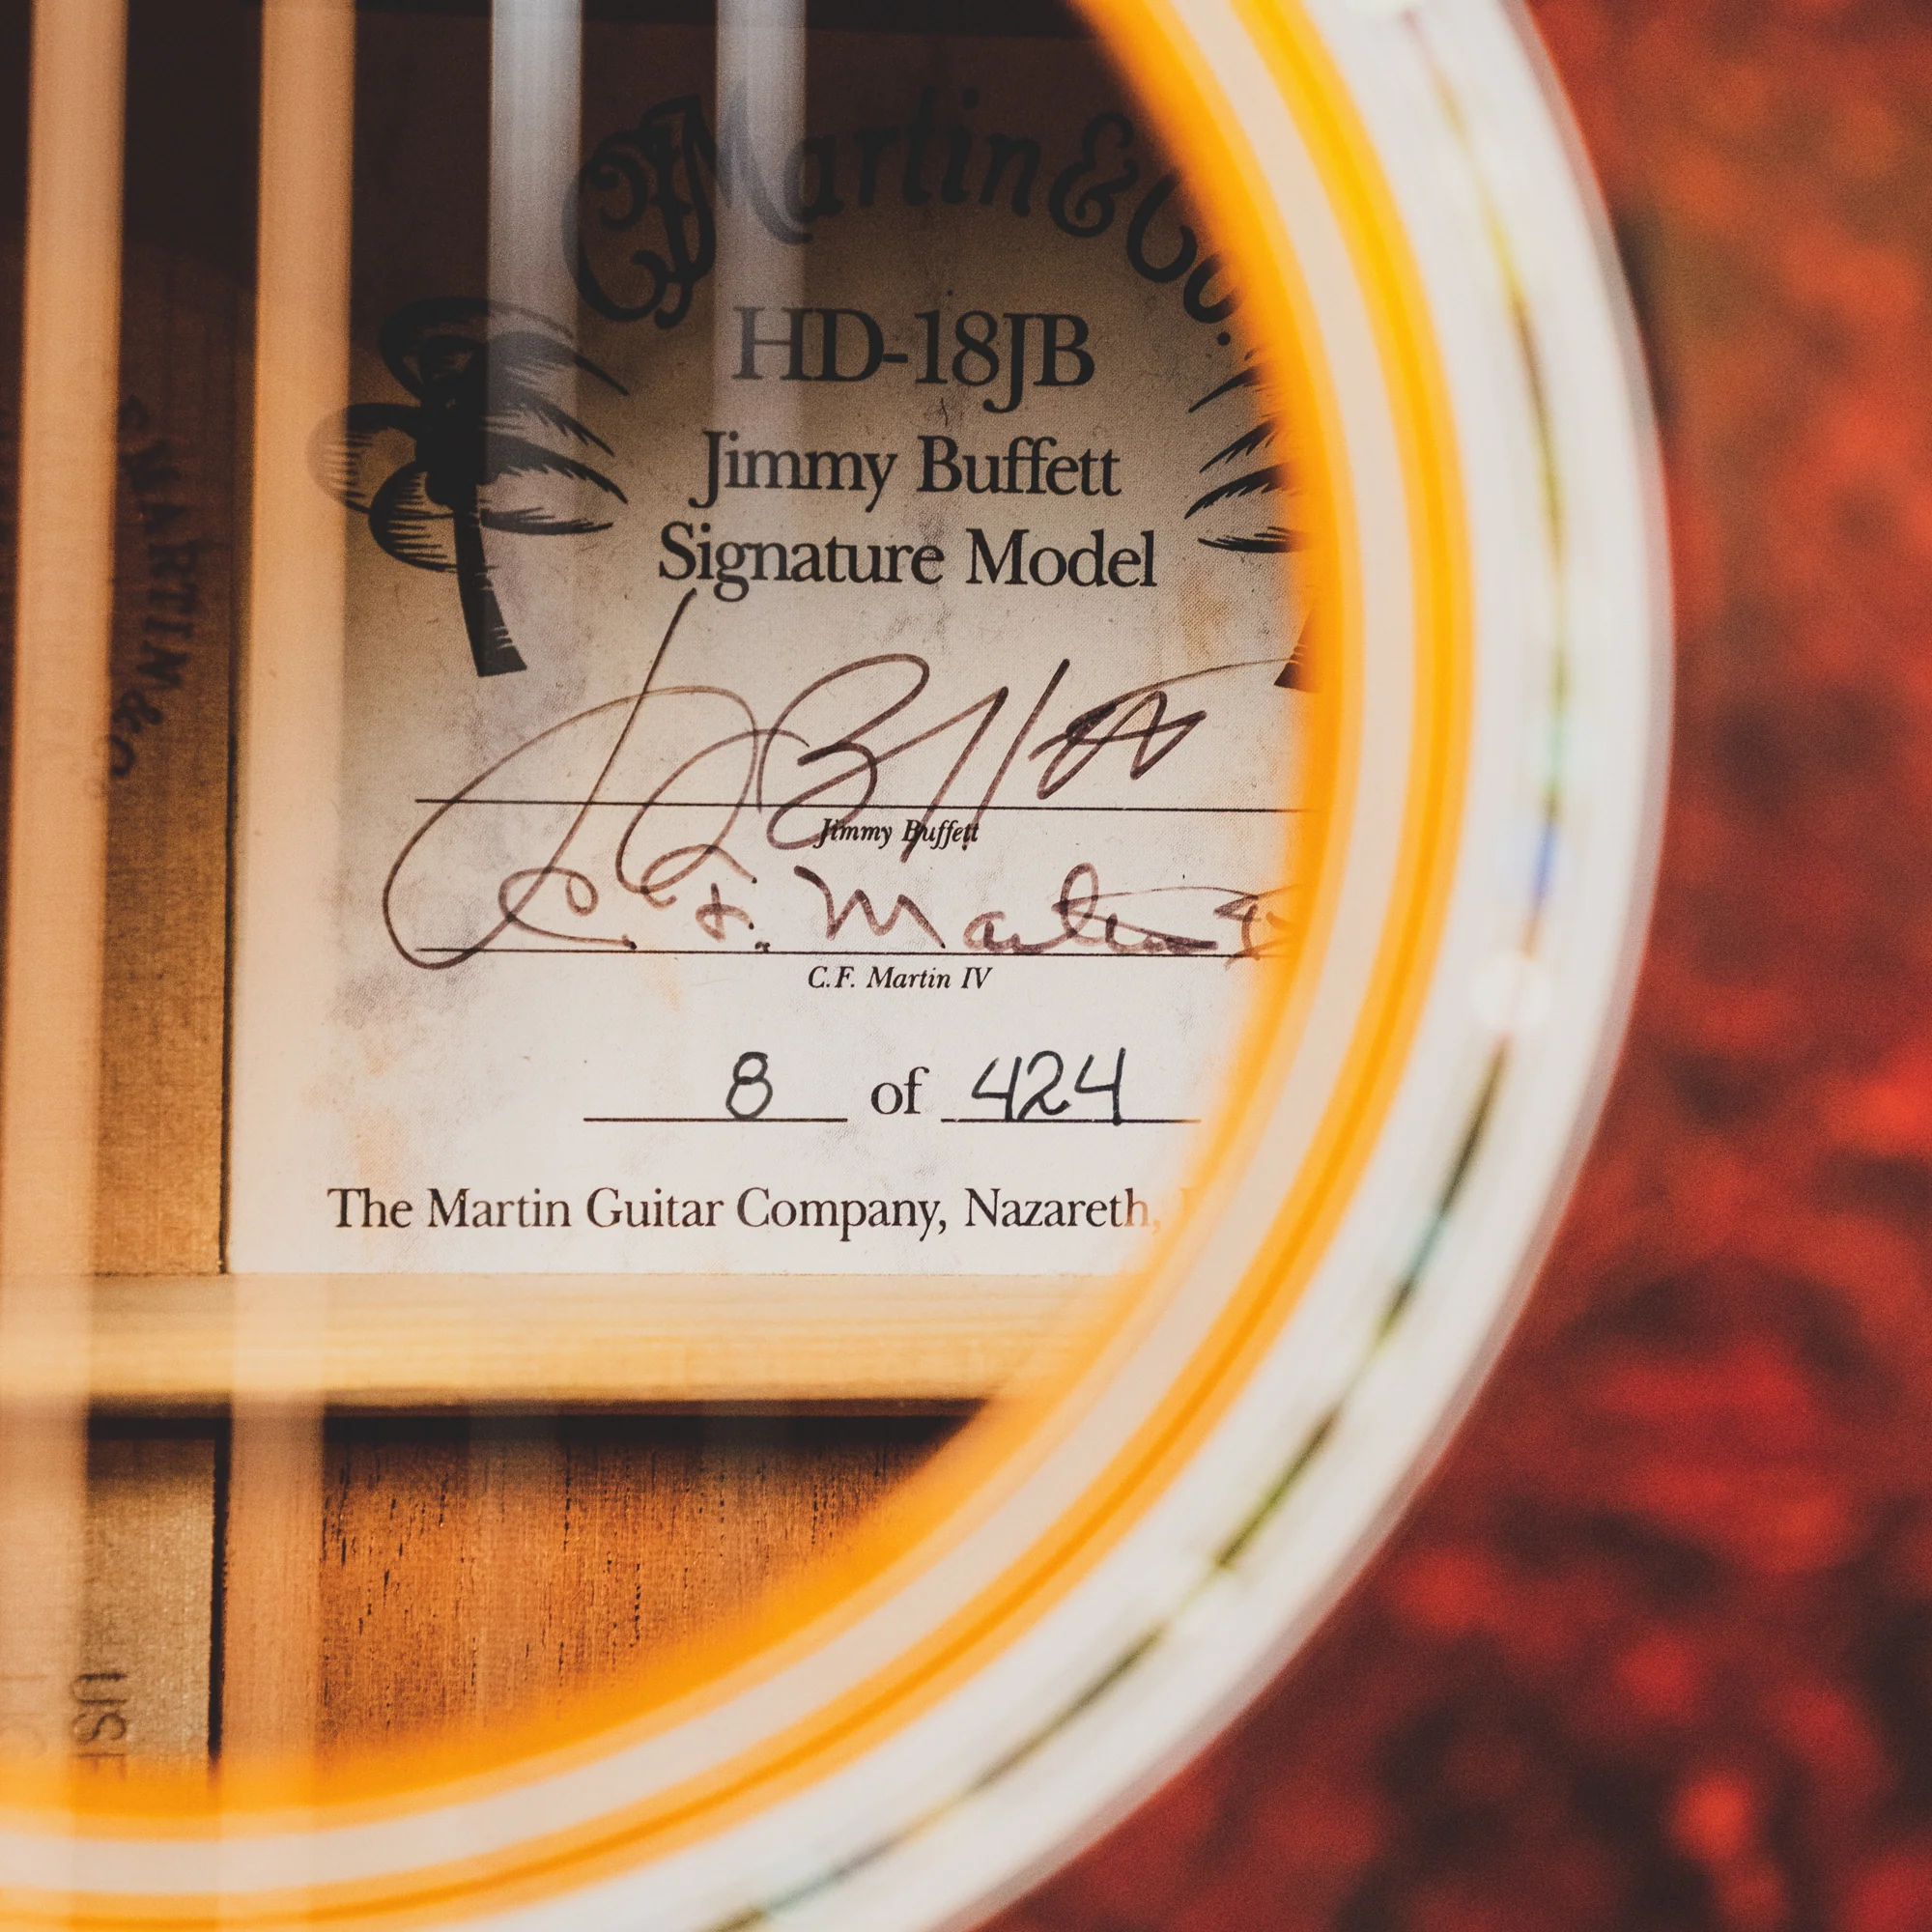 CF Martin & Co.
HD-18JB
Jimmy Buffett
Signature Model
Jimmy Buffett
C. F. Martin
C.F. Martin IV
8 of 424
The Martin Guitar Company, Nazareth,
MARTIN & CO